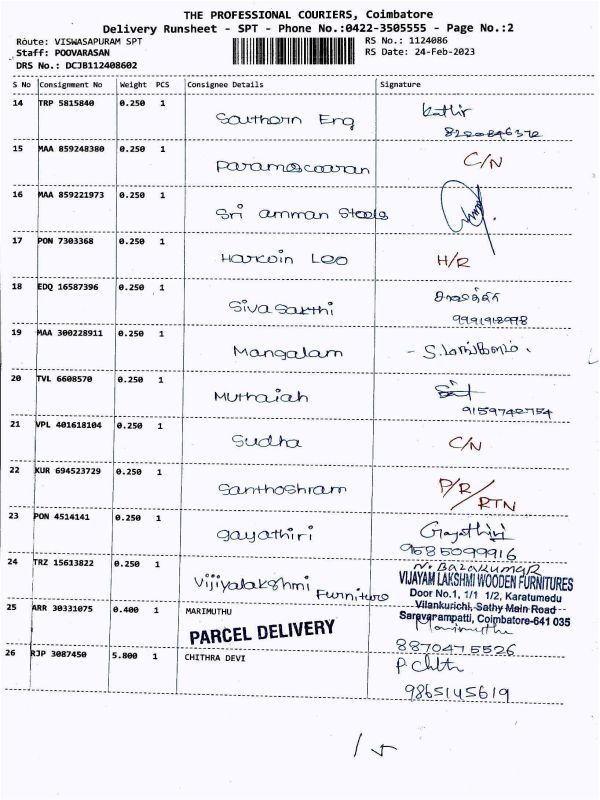 THE PROFESSIONAL COURIERS, Coimbatore
Delivery Runsheet - SPT - Phone No.:0422-3505555 - Page No.:2
Route: VISWASAPURAM SPT
RS No.: 1124086
Staff: POOVARASAN
RS Date: 24-Feb-2023
DRS No.: DCJB112408602
S No Consignment No Weight PCS Consignee Details Signature
14 TRP 5815840 0.250 1 Southern Eng Kathir
8220846372
15 MAA 859248380 0.250 1 Parameswaran C/N
16 MAA 859221973 0.250 1 Sri amman Steels
17 PON 7303368 0.250 1 Harwin Leo H/R
18 EDQ 16587396 0.250 1 Siva Sakthi
9991918998
19 MAA 300228911 0.250 1 Mangalam
20 TVL 6608570 0.250 1 Muthaiah
9159742754
21 VPL 401618104 0.250 1 Sudha C/N
22 KUR 694523729 0.250 1 Santhoshram P/R/
RTN
23 PON 4514141 0.250 1 gayathiri Gayathiri
9585099916
24 TRZ 15613822 0.250 1 Vijiyalakshmi Furniture N. Balakumar
VIJAYAM LAKSHMI WOODEN FURNITURES
Door No.1, 1/1 1/2, Karatumedu
Vilankurichi, Sathy Main Road
Saravarampatti, Coimbatore-641 035
25 ARR 30331075 0.400 1 MARIMUTHU Marimuthu
PARCEL DELIVERY
8870475526
26 RJP 3087450 5.800 1 CHITHRA DEVI
9865145619